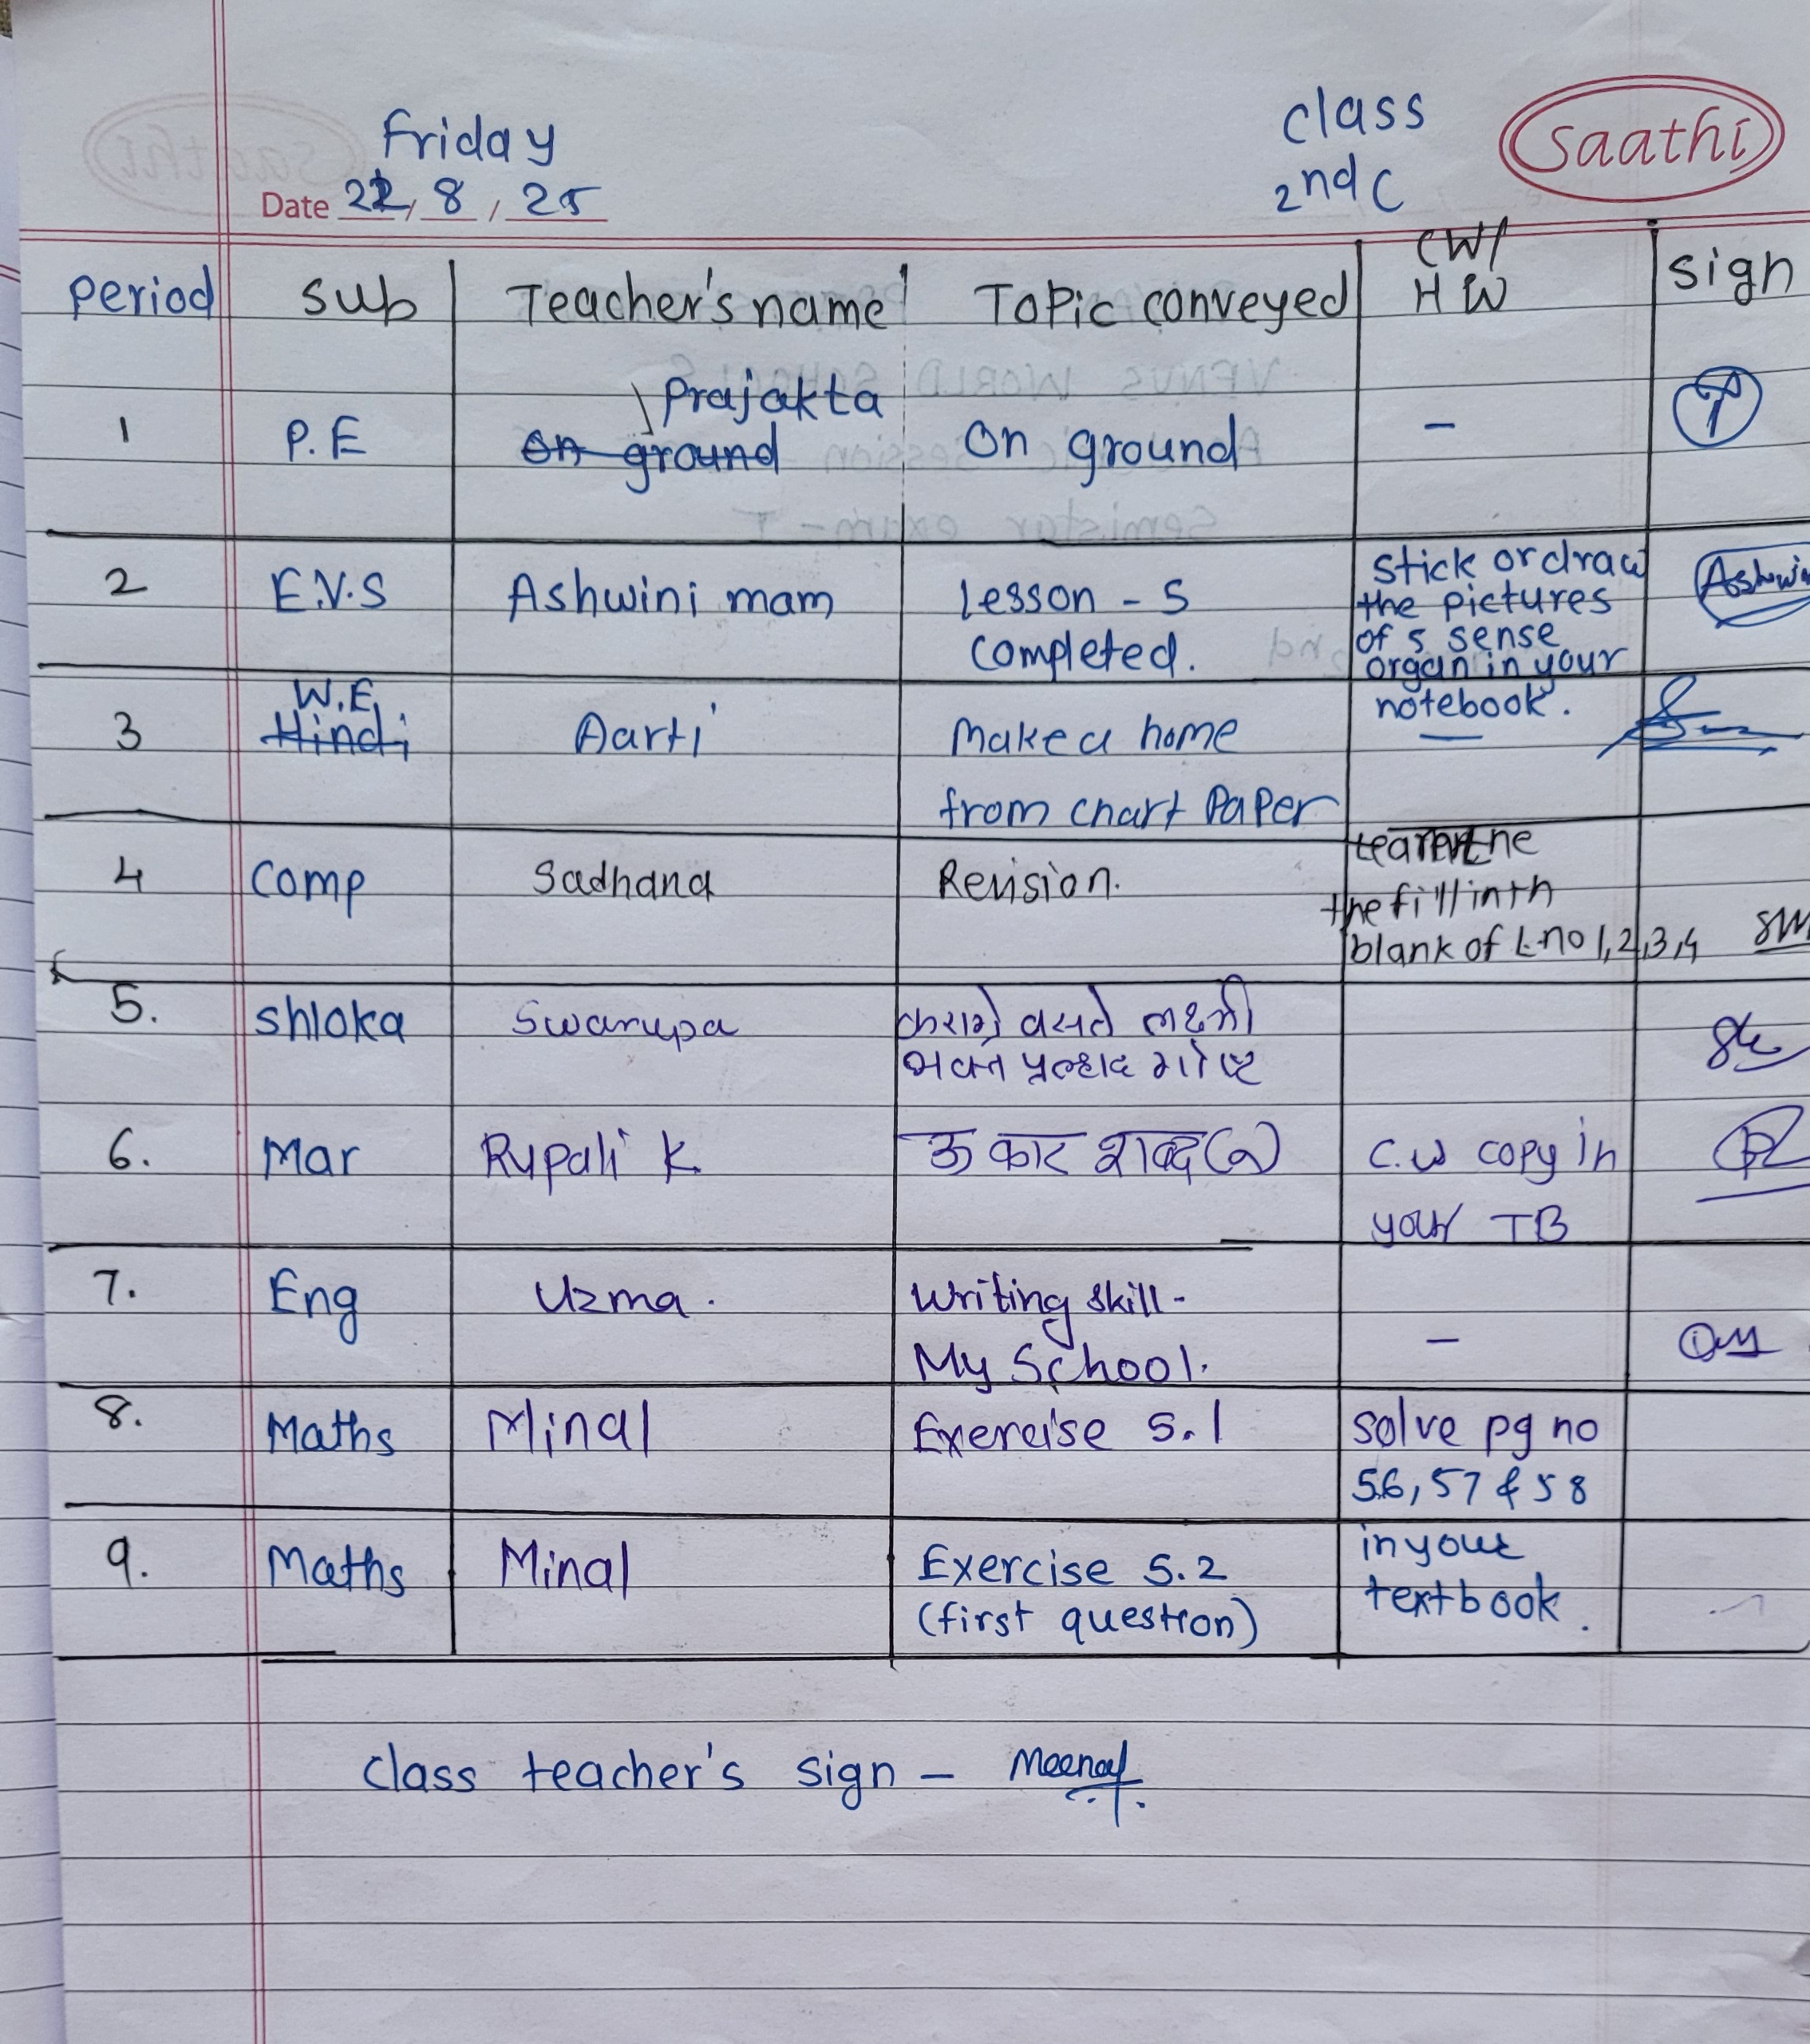 Friday
class
saathi
Date 22/8/25
2nd C
Period Sub Teacher's name Topic conveyed CW/ HW sign
1 P.E on ground Prajakta On ground -
2 E.V.S Ashwini mam Lesson - 5 completed.
stick or draw
the pictures
of 5 sense
organ in your
notebook.
Ashwin
3 Hindi W.E. Aarti Make a home
from chart Paper
4 Comp Sadhana Revision.
the fill in th
blank of L.no 1,2,3,4
5. shloka Swarupa कराग्रे वसते लक्ष्मी
भक्त प्रल्हाद गोष्ट
6. Mar Rupali K. ऊ कार शब्द C.W copy in
your TB
7. Eng Uzma. Writing skill-
My School. -
8. Maths Minal Exercise 5.1 solve pg no
56, 57 & 58
9. Maths Minal Exercise 5.2 in your
(first question) textbook.
class teacher's sign -